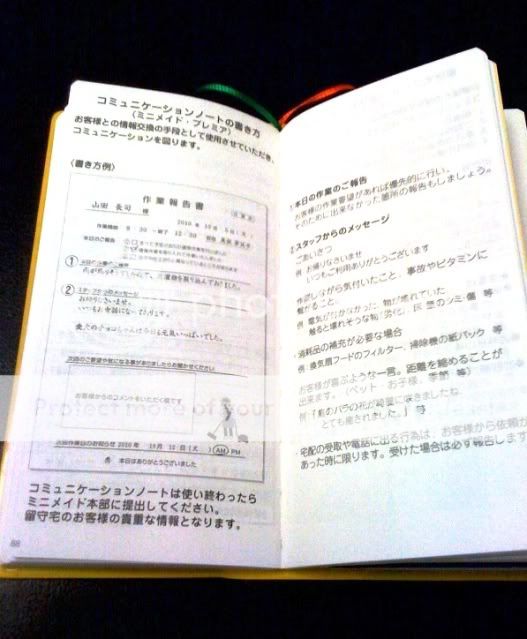 コミュニケーションノートの書き方
（ミニメイド・プレミア）
お客様との情報交換の手段として使用させていただき、
コミュニケーションを図ります。
〈書き方例〉
作業報告書
山田 長司 様
2010年 10月 5日
作業時間 9:30 ～終了 12:30
本日のご報告
① 本日の作業のご報告
② スタッフからのメッセージ
お帰りなさいませ。
いつもお世話になっております。
次回のご要望や気になる事がありましたらお聞かせください
お客様からのコメントをいただく欄です
次回作業日のお知らせ 2010年 10月 12日（火） AM PM
本日はありがとうございました
コミュニケーションノートは使い終わったら
ミニメイド本部に提出してください。
留守宅のお客様の貴重な情報となります。
88
1.本日の作業のご報告
お客様の作業要望があれば優先的に行い、
そのために出来なかった箇所の報告もしましょう。
2.スタッフからのメッセージ
・ごあいさつ
例：お帰りなさいませ
いつもご利用ありがとうございます
・作業しながら気付いたこと、事故やビタミンに
繋がること。
例：電気が付かなかった、物が壊れていた
触ると壊れそうな物（劣化）、床・壁のシミ・傷 等
・消耗品の補充が必要な場合
例：換気扇フードのフィルター、掃除機の紙パック 等
・お客様が喜ぶような一言。距離を縮めることが
出来ます。（ペット・お子様、季節 等）
例：「庭のバラの花が綺麗に咲きましたね
とても癒されました。」等
・宅配の受取や電話に出る行為は、お客様から依頼が
あった時に限ります。受けた場合は必ず報告します
Protect more of your